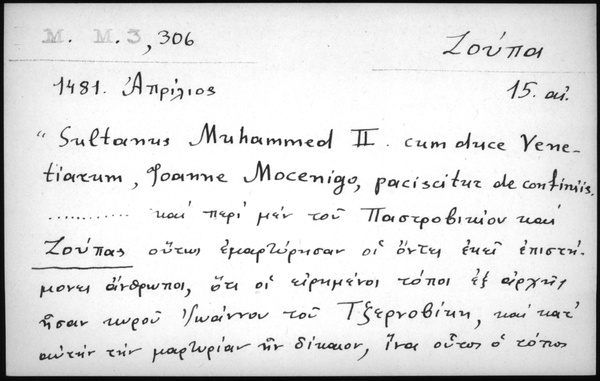 M. M. 3, 306
Ζούπα
1481. Ἀπρίλιος
15. αἰ.
“Sultanus Muhammed II. cum duce Vene-
tiarum, Joanne Mocenigo, paciscitur de confiniis.
............ καί περί μέν τοῦ Παστροβικίου καί
Ζούπας οὕτως ἐμαρτύρησαν οἱ ὄντες ἐκεῖ ἐπιστή-
μονες ἄνθρωποι, ὅτι οἱ εἰρημένοι τόποι ἐξ ἀρχῆς
ἦσαν κυροῦ Ἰωάννου τοῦ Τζερνοβίκη, καί κατ’
αὐτήν τήν μαρτυρίαν ἦν δίκαιον, ἵνα οὗτος ὁ τόπος